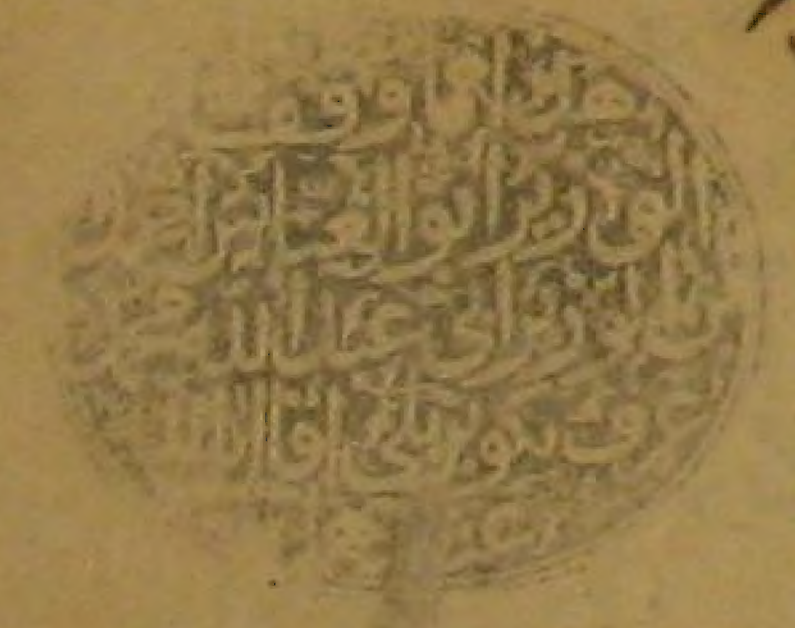 هذا مما وقف
الوزير ابو العباس احمد
بن الوزير ابي عبد الله محمد
عرف بكوبريلي اقال الله